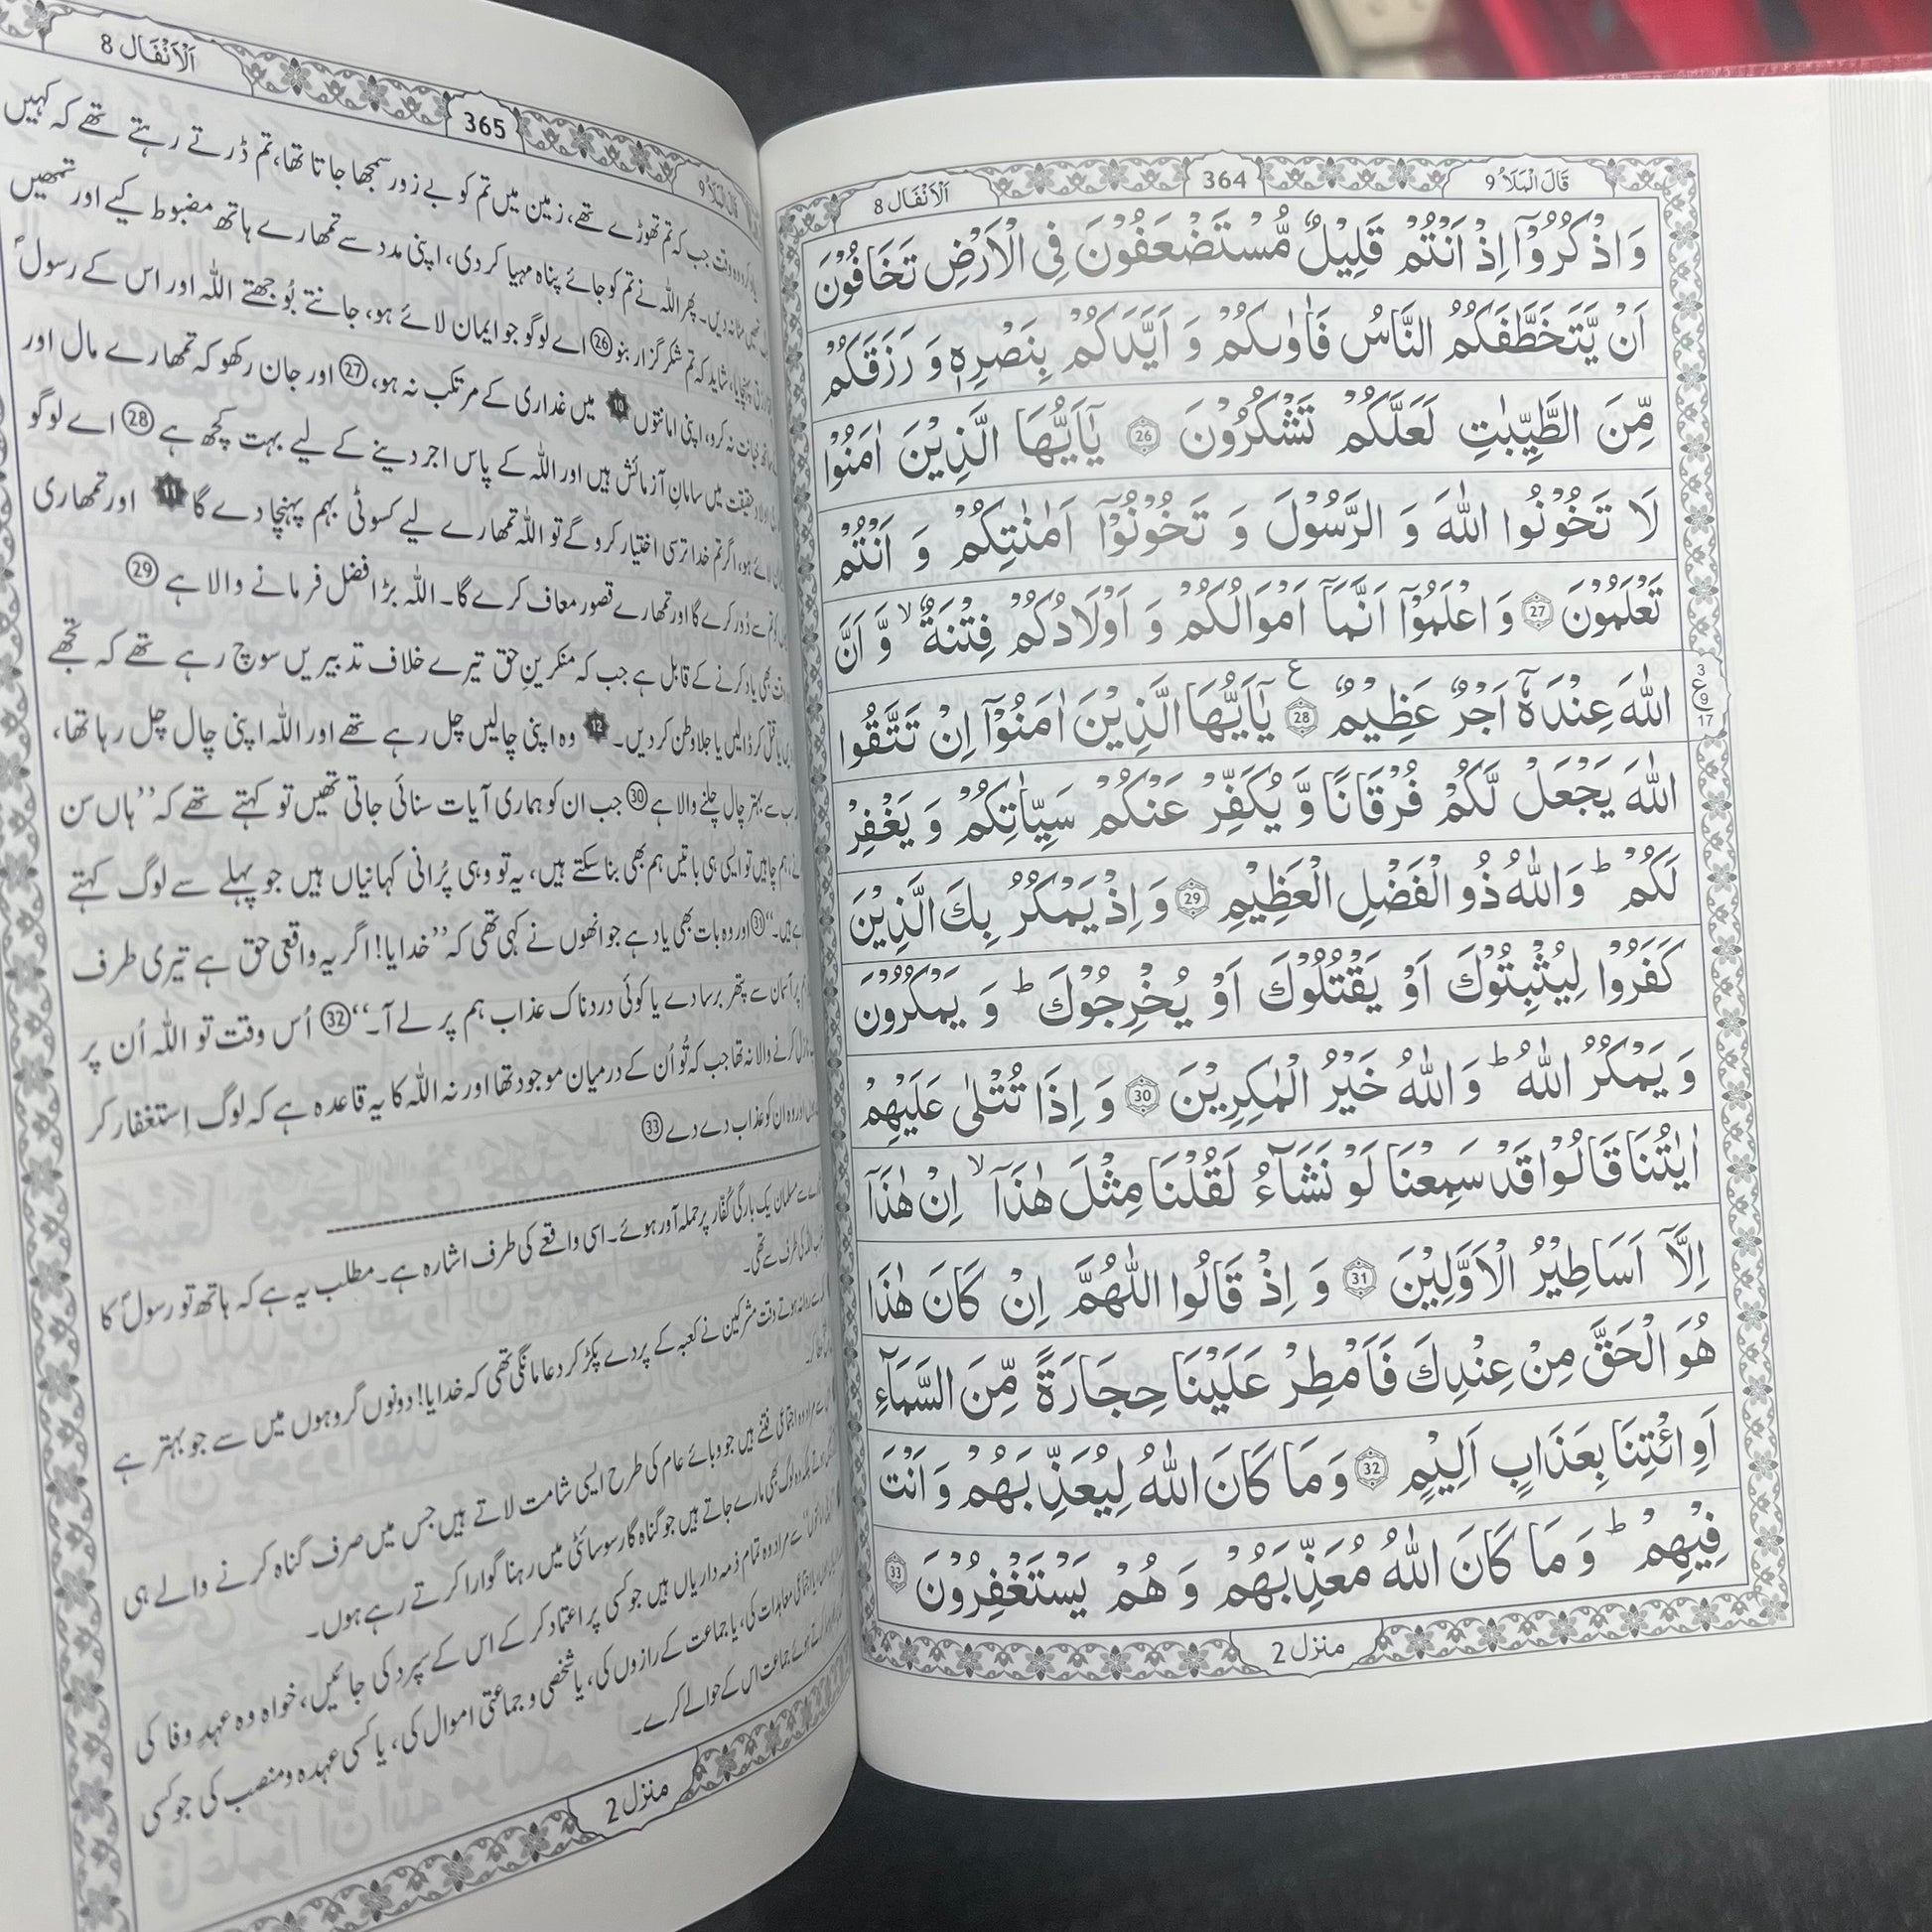 قَالَ الْمَلَاُ 9
364
اَلْاَنْفَال 8
وَاذْكُرُوْۤا اِذْ اَنْتُمْ قَلِيْلٌ مُّسْتَضْعَفُوْنَ فِي الْاَرْضِ تَخَافُوْنَ
اَنْ يَّتَخَطَّفَكُمُ النَّاسُ فَاٰوٰىكُمْ وَ اَيَّدَكُمْ بِنَصْرِهٖ وَ رَزَقَكُمْ
مِّنَ الطَّيِّبٰتِ لَعَلَّكُمْ تَشْكُرُوْنَ 26 يٰۤاَيُّهَا الَّذِيْنَ اٰمَنُوْا
لَا تَخُوْنُوا اللّٰهَ وَ الرَّسُوْلَ وَ تَخُوْنُوْۤا اَمٰنٰتِكُمْ وَ اَنْتُمْ
تَعْلَمُوْنَ 27 وَ اعْلَمُوْۤا اَنَّمَاۤ اَمْوَالُكُمْ وَ اَوْلَادُكُمْ فِتْنَةٌ ۙ وَّ اَنَّ
اللّٰهَ عِنْدَهٗۤ اَجْرٌ عَظِيْمٌ 28 ع يٰۤاَيُّهَا الَّذِيْنَ اٰمَنُوْۤا اِنْ تَتَّقُوا
3
ع
9
17
اللّٰهَ يَجْعَلْ لَّكُمْ فُرْقَانًا وَّ يُكَفِّرْ عَنْكُمْ سَيِّاٰتِكُمْ وَ يَغْفِرْ
لَكُمْ ؕ وَ اللّٰهُ ذُو الْفَضْلِ الْعَظِيْمِ 29 وَ اِذْ يَمْكُرُ بِكَ الَّذِيْنَ
كَفَرُوْا لِيُثْبِتُوْكَ اَوْ يَقْتُلُوْكَ اَوْ يُخْرِجُوْكَ ؕ وَ يَمْكُرُوْنَ
وَ يَمْكُرُ اللّٰهُ ؕ وَ اللّٰهُ خَيْرُ الْمٰكِرِيْنَ 30 وَ اِذَا تُتْلٰى عَلَيْهِمْ
اٰيٰتُنَا قَالُوْا قَدْ سَمِعْنَا لَوْ نَشَآءُ لَقُلْنَا مِثْلَ هٰذَاۤ ۙ اِنْ هٰذَاۤ
اِلَّاۤ اَسَاطِيْرُ الْاَوَّلِيْنَ 31 وَ اِذْ قَالُوا اللّٰهُمَّ اِنْ كَانَ هٰذَا
هُوَ الْحَقَّ مِنْ عِنْدِكَ فَاَمْطِرْ عَلَيْنَا حِجَارَةً مِّنَ السَّمَآءِ
اَوِ ائْتِنَا بِعَذَابٍ اَلِيْمٍ 32 وَ مَا كَانَ اللّٰهُ لِيُعَذِّبَهُمْ وَ اَنْتَ
فِيْهِمْ ؕ وَ مَا كَانَ اللّٰهُ مُعَذِّبَهُمْ وَ هُمْ يَسْتَغْفِرُوْنَ 33
منزل 2
365
اَلْاَنْفَال 8
وہ وقت جب کہ تم تھوڑے تھے، زمین میں تم کو بے زور سمجھا جاتا تھا، تم ڈرتے رہتے تھے کہ کہیں
مٹا نہ دیں۔ پھر اللہ نے تم کو جائے پناہ مہیا کر دی، اپنی مدد سے تمھارے ہاتھ مضبوط کیے اور تمھیں
پہنچایا، شاید کہ تم شکر گزار بنو 26 اے لوگو جو ایمان لائے ہو، جانتے بُوجھتے اللہ اور اس کے رسولؐ
خیانت نہ کرو، اپنی امانتوں 10 میں غداری کے مرتکب نہ ہو، 27 اور جان رکھو کہ تمھارے مال اور
حقیقت میں سامانِ آزمائش ہیں اور اللہ کے پاس اجر دینے کے لیے بہت کچھ ہے 28 اے لوگو
لائے ہو، اگر تم خدا ترسی اختیار کرو گے تو اللہ تمھارے لیے کسوٹی بہم پہنچا دے گا 11 اور تمھاری
تم سے دُور کرے گا اور تمھارے قصور معاف کرے گا۔ اللہ بڑا فضل فرمانے والا ہے 29
بھی یاد کرنے کے قابل ہے جب کہ منکرینِ حق تیرے خلاف تدبیریں سوچ رہے تھے کہ تجھے
یا قتل کر ڈالیں یا جلا وطن کر دیں۔ 12 وہ اپنی چالیں چل رہے تھے اور اللہ اپنی چال چل رہا تھا،
سے بہتر چال چلنے والا ہے 30 جب ان کو ہماری آیات سنائی جاتی تھیں تو کہتے تھے کہ ”ہاں سن
ہم چاہیں تو ایسی ہی باتیں ہم بھی بنا سکتے ہیں، یہ تو وہی پُرانی کہانیاں ہیں جو پہلے سے لوگ کہتے
ہیں۔“ 31 اور وہ بات بھی یاد ہے جو انھوں نے کہی تھی کہ ”خدایا! اگر یہ واقعی حق ہے تیری طرف
پر آسمان سے پتھر برسا دے یا کوئی دردناک عذاب ہم پر لے آ۔“ 32 اُس وقت تو اللہ اُن پر
کرنے والا نہ تھا جب کہ تُو اُن کے درمیان موجود تھا اور نہ اللہ کا یہ قاعدہ ہے کہ لوگ اِستغفار کر
اور وہ ان کو عذاب دے دے 33
مسلمان یک بارگی کُفّار پر حملہ آور ہوئے۔ اسی واقعے کی طرف اشارہ ہے۔ مطلب یہ ہے کہ ہاتھ تو رسولؐ کا
کی طرف سے تھی۔
روانہ ہوتے وقت مشرکین نے کعبہ کے پردے پکڑ کر دعا مانگی تھی کہ خدایا! دونوں گروہوں میں سے جو بہتر ہے
اجتماعی فتنے ہیں جو وبائے عام کی طرح ایسی شامت لاتے ہیں جس میں صرف گناہ کرنے والے ہی
لوگ بھی مارے جاتے ہیں جو گناہ گار سوسائٹی میں رہنا گوارا کرتے رہے ہوں۔
سے مراد وہ تمام ذمہ داریاں ہیں جو کسی پر اعتماد کر کے اس کے سپرد کی جائیں، خواہ وہ عہدِ وفا کی
معاہدات کی، یا جماعت کے رازوں کی، یا شخصی و جماعتی اموال کی، یا کسی عہدہ و منصب کی جو کسی
جماعت اس کے حوالے کرے۔
منزل 2